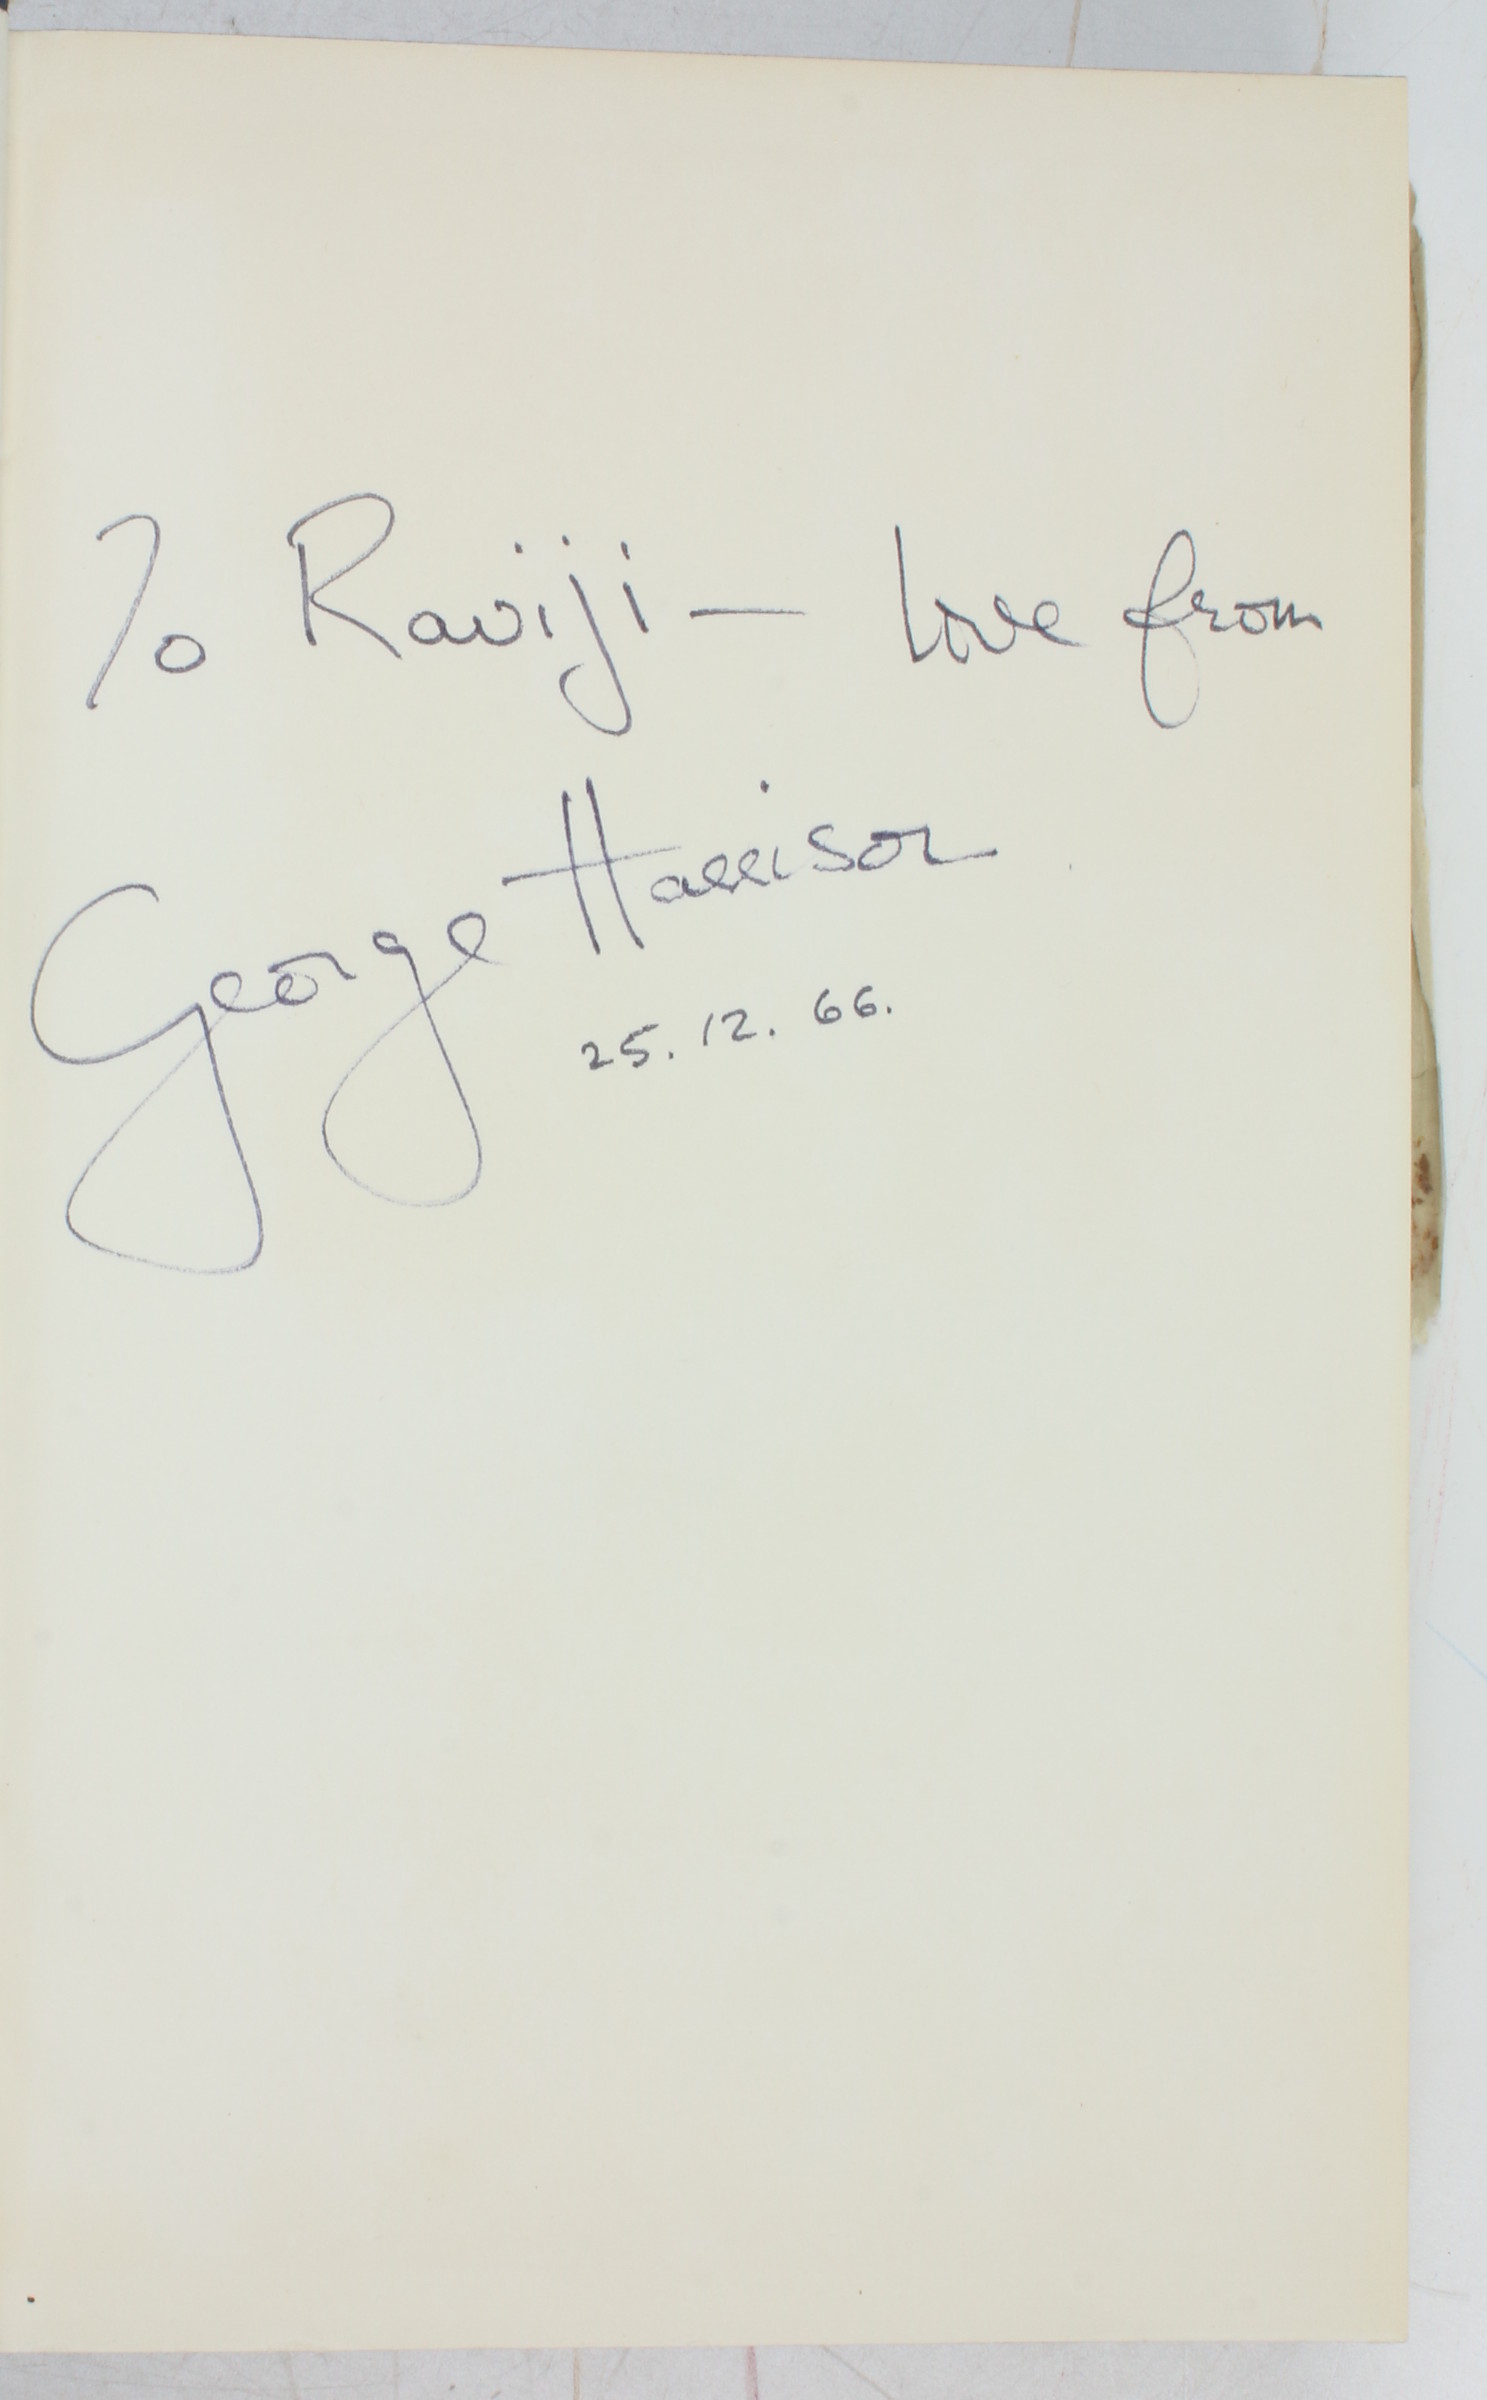 To Raviji — love from
George Harrison
25.12.66.